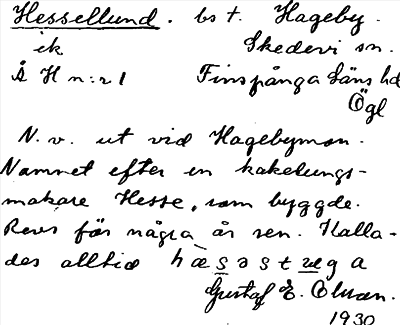 Hessellund. bs t. Hageby.
ek Skedevi sn.
Å H n:r 1 Finspånga läns hd
Ögl
N. v. ut vid Hagebymon.
Namnet efter en kakelungs-
makare Hesse, som byggde.
Revs för några år sen. Kalla-
des alltid
Gustaf E. Olsson.
1930